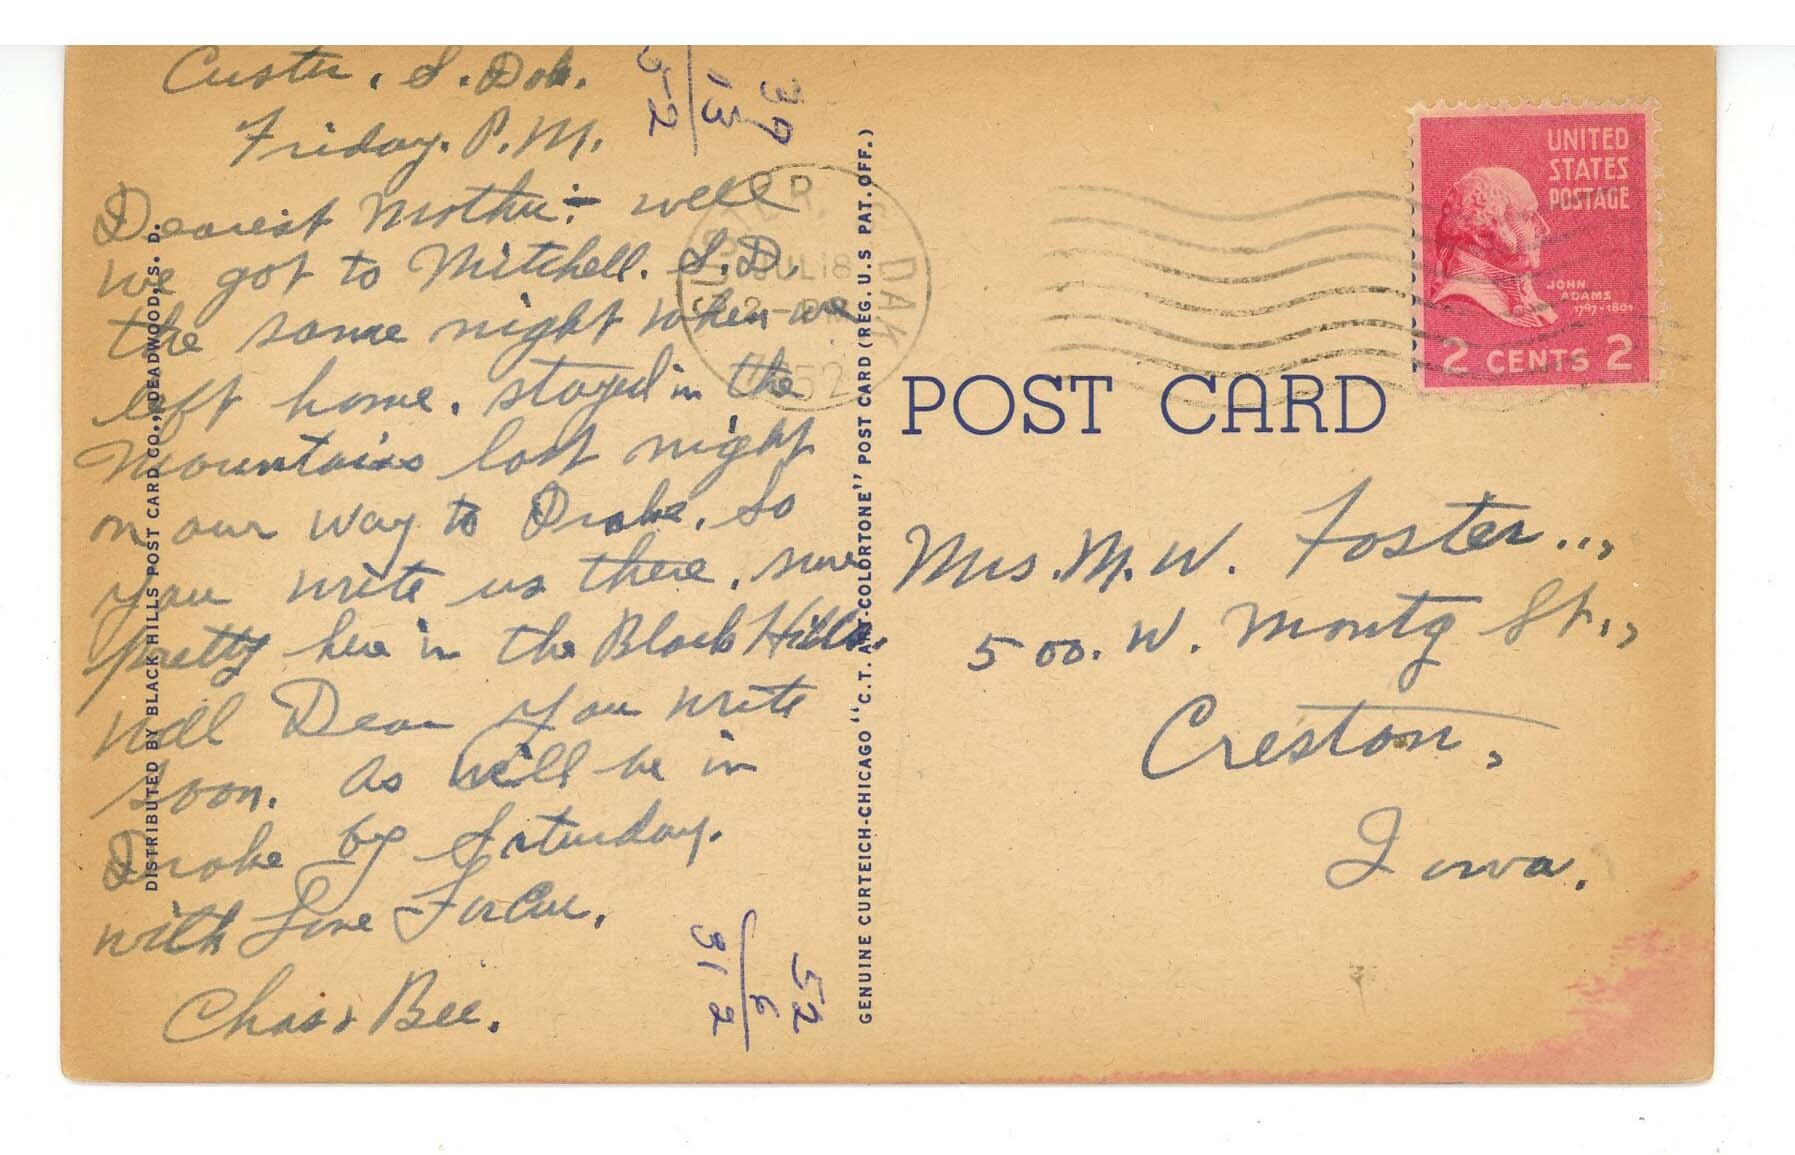 Custer, S. Dak.
Friday. P.M.
Dearest Mother:- well
we got to Mitchell. S.D.
the same night when we
left home. stayed in the
Mountains last night
on our way to Drake, So
you write us there. sure
pretty here in the Black Hills.
well Dear you write
soon. as will be in
Drake by Saturday.
with Love
Chas & Bee.
39
13
52
52
6
312
DISTRIBUTED BY BLACK HILLS POST CARD CO., DEADWOOD, S. D.
GENUINE CURTEICH-CHICAGO "C.T. ART-COLORTONE" POST CARD (REG. U.S PAT. OFF.)
CUSTER, S. DAK
JUL 18
1952
UNITED
STATES
POSTAGE
JOHN
ADAMS
1797-1801
2 CENTS 2
POST CARD
Mrs. M. W. Foster..,
500. W. Montg St.,
Creston,
Iowa.